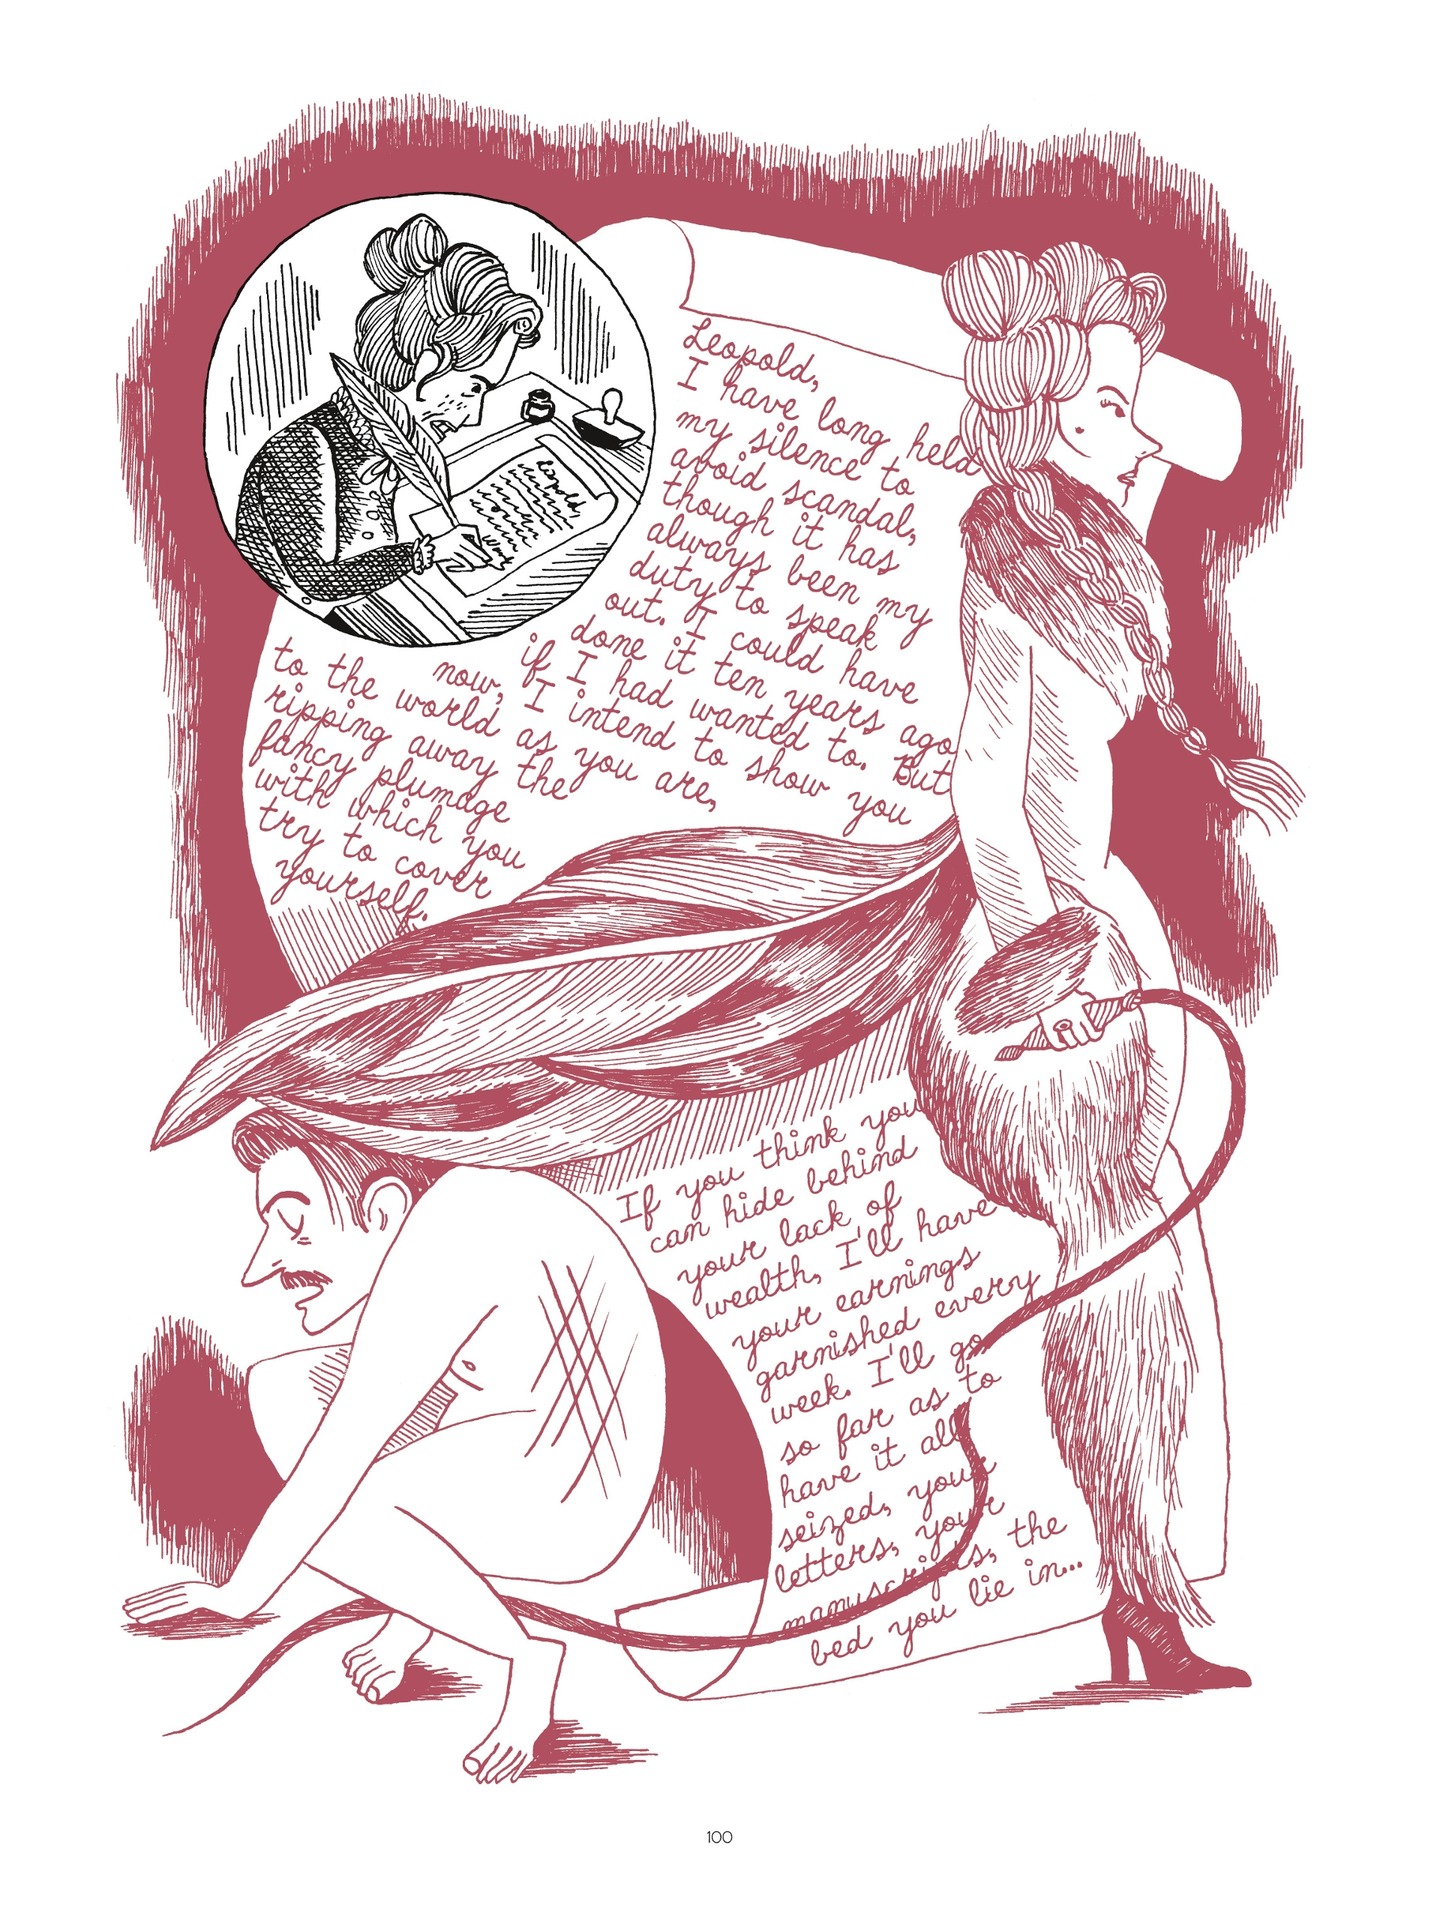 Leopold,
Leopold,
I have long held
my silence to
avoid scandal,
though it has
always been my
duty to speak
out. I could have
done it ten years ago
if I had wanted to. But
now, I intend to show you
to the world as you are,
ripping away the
fancy plumage
with which you
try to cover
yourself.
If you think you
can hide behind
your lack of
wealth, I'll have
your earnings
garnished every
week. I'll go
so far as to
have it all
seized, your
letters, your
manuscripts, the
bed you lie in...
100